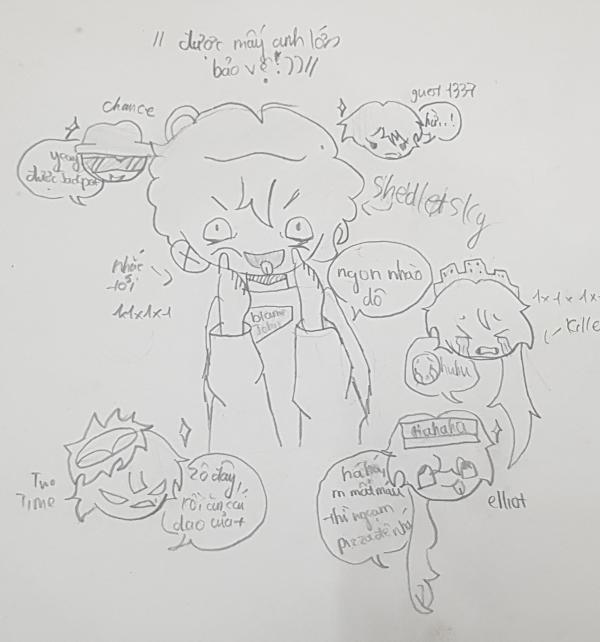 // được mấy anh lớn
bảo vệ!?))//
chance
guest 1337
hừ..!
yeay
được Jackpot
Shedletsky
nhóc
tôi
1x1x1x1
blame
John
ngon nhào
dô
1x1x1x
Kille
huhu
Hahaha
Two
Time
Zô đây,
rồi ăn cái
dao của t
há há,
m mất máu
thì ngậm
pizza đê nhá
elliot